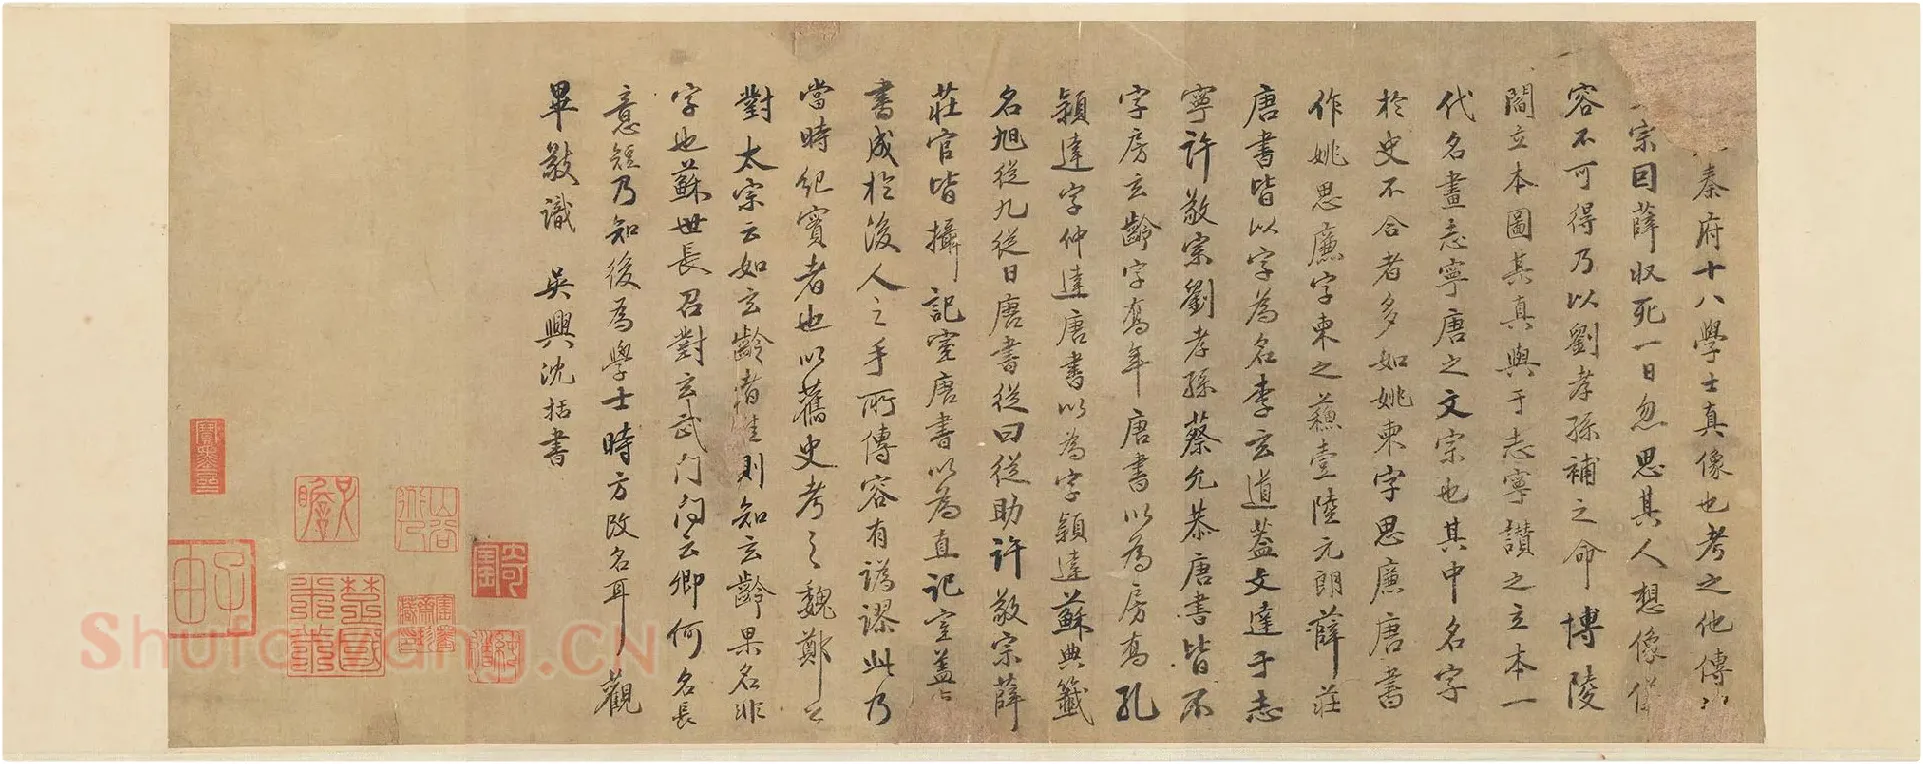 秦府十八學士真像也考之他傳
宗因薛収死一日忽思其人想像儀
容不可得乃以劉孝孫補之命博陵
閻立本圖其真與于志寧讃之立本一
代名畫志寧唐之文宗也其中名字
於史不合者多如姚柬字思廉唐書
作姚思廉字柬之蘓壹陸元朗薛莊
唐書皆以字為名李玄道蓋文達于志
寧許敬宗劉孝孫蔡允恭唐書皆不
字房玄齡字喬年唐書以為房喬孔
穎達字仲達唐書以為字穎達蘇典籤
名旭從九從日唐書從曰從助許敬宗薛
莊官皆攝記室唐書以為直記室蓋
書成於後人之手所傳容有譌謬此乃
當時紀實者也以舊史考之魏鄭公
對太宗云如玄齡者則知玄齡果名非
字也蘇世長召對玄武門問云卿何名長
意短乃知後為學士時方改名耳觀
畢敬識 吳興沈括書
寶墨
子瞻
山谷
子由
楚國米芾
Shufawang.CN